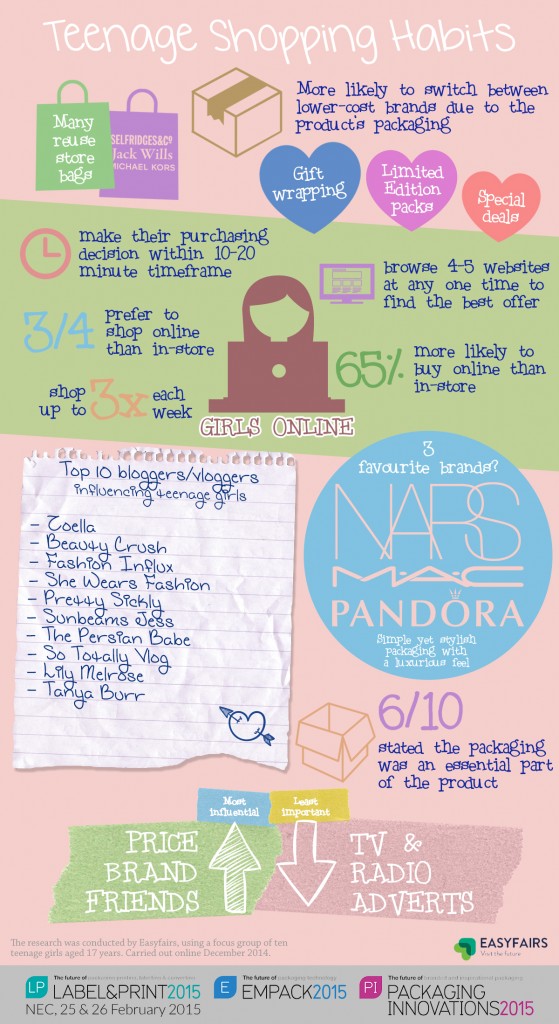 Teenage Shopping Habits
Many
reuse
store
bags
SELFRIDGES&CO
Jack Wills
MICHAEL KORS
More likely to switch between
lower-cost brands due to the
product's packaging
Gift
wrapping
Limited
Edition
packs
Special
deals
make their purchasing
decision within 10-20
minute timeframe
browse 4-5 websites
at any one time to
find the best offer
3/4 prefer to
shop online
than in-store
65% more likely to
buy online than
in-store
shop
up to 3x each
week
GIRLS ONLINE
Top 10 bloggers/vloggers
influencing teenage girls
- Zoella
- Beauty Crush
- Fashion Influx
- She Wears Fashion
- Pretty Sickly
- Sunbeams Jess
- The Persian Babe
- So Totally Vlog
- Lily Melrose
- Tanya Burr
3
favourite brands?
NARS
M·A·C
PANDORA
Simple yet stylish
packaging with
a luxurious feel
6/10
stated the packaging
was an essential part
of the product
Most
influential
Least
important
PRICE
BRAND
FRIENDS
TV &
RADIO
ADVERTS
The research was conducted by Easyfairs, using a focus group of ten
teenage girls aged 17 years. Carried out online December 2014.
EASYFAIRS
Visit the future
LP
The future of
LABEL&PRINT2015
NEC, 25 & 26 February 2015
E
The future of packaging technology
EMPACK2015
PI
The future of branded and inspirational packaging
PACKAGING
INNOVATIONS2015